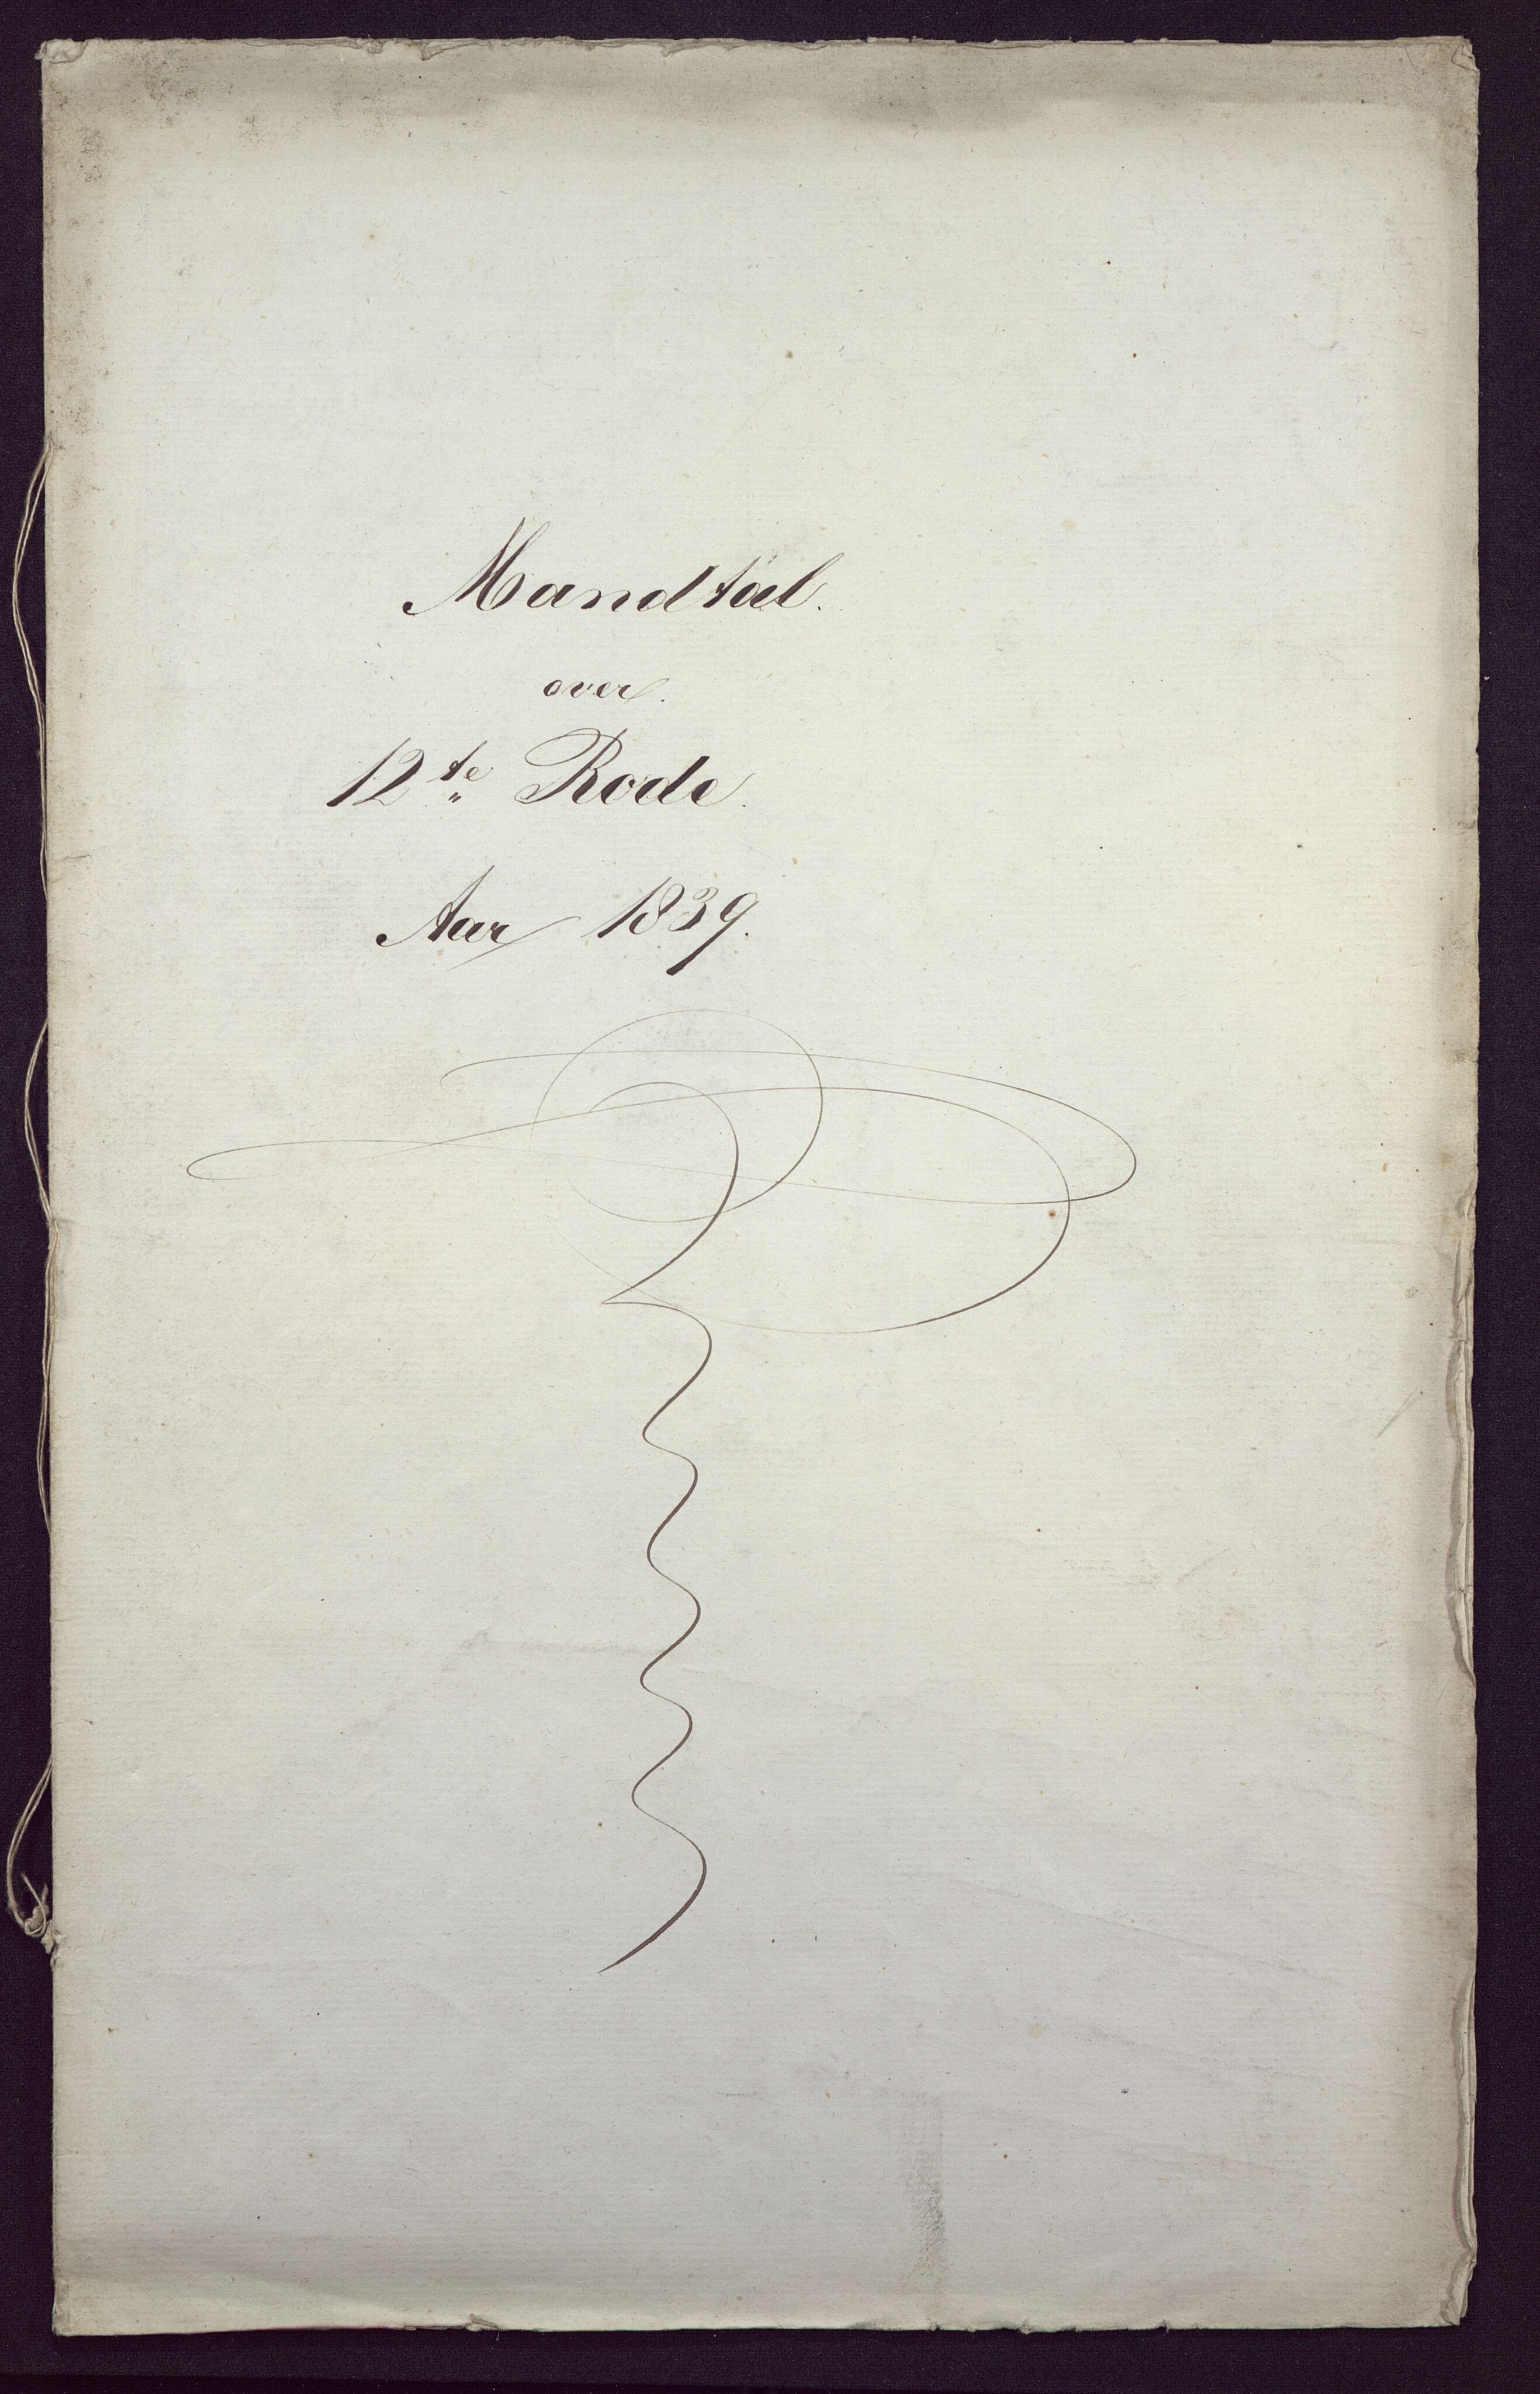 Mandtal.
over.
12te Rode.
Aar 1839.